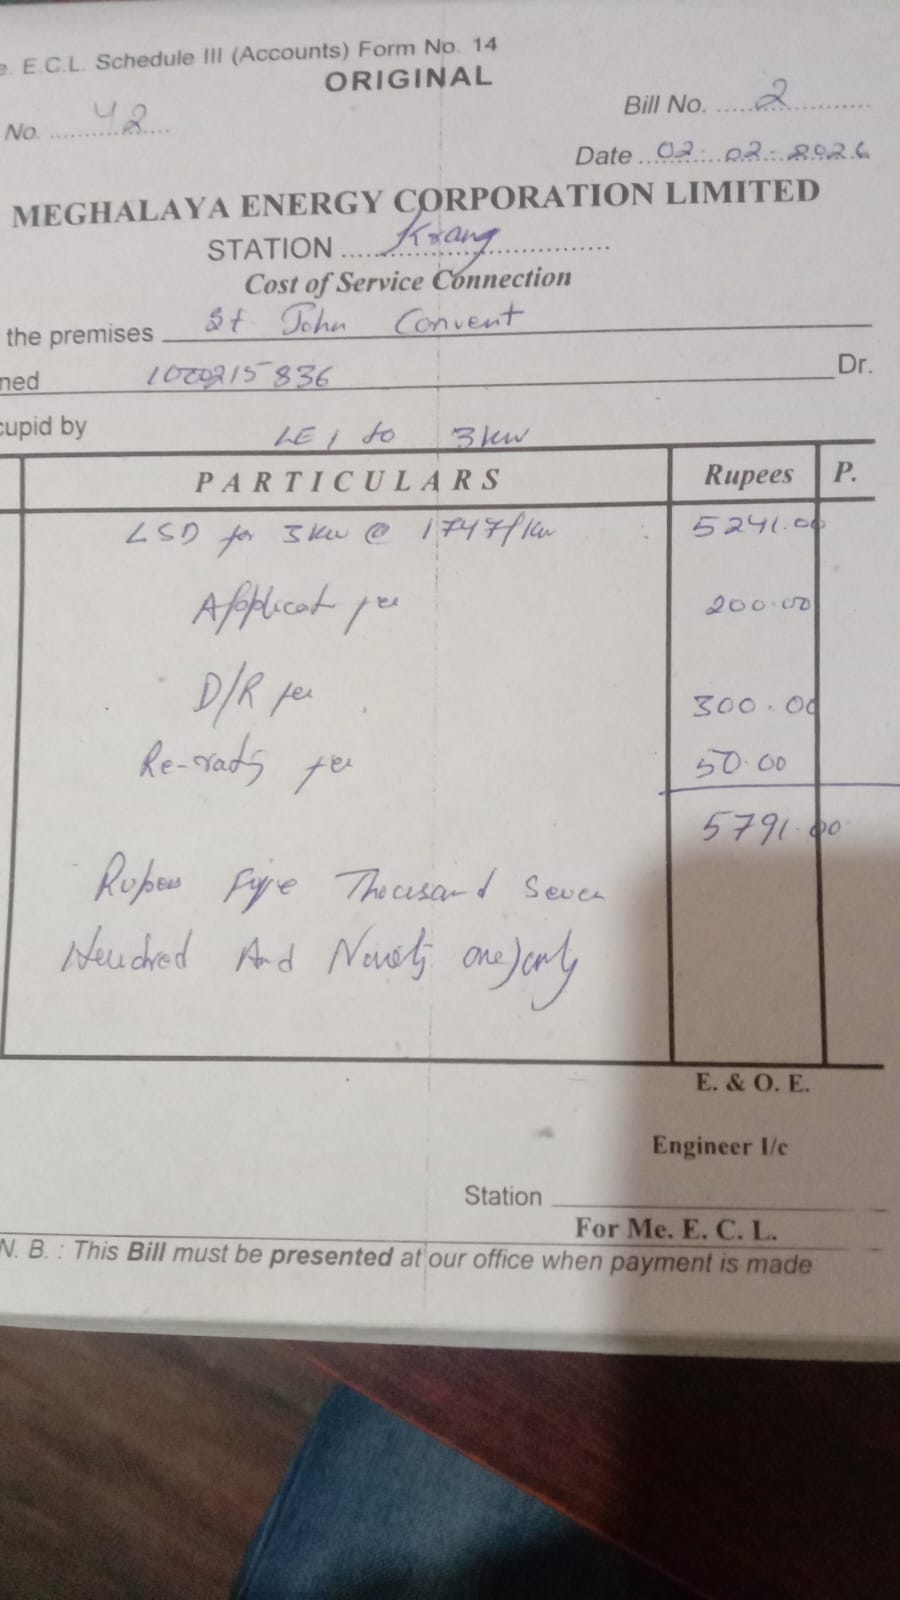 e. E.C.L. Schedule III (Accounts) Form No. 14
ORIGINAL
No. 42
Bill No. 2
Date 02-02-2026
MEGHALAYA ENERGY CORPORATION LIMITED
STATION Krang
Cost of Service Connection
the premises St. John Convent
ned 1000215836 Dr.
cupid by
LE 1 to 3kw
PARTICULARS Rupees P.
LSD for 3kw @ 1747/kw 5241.00
Applicat fee 200.00
D/R fee 300.00
Re-rating fee 50.00
5791.00
Rupees Five Thousand Seven
Hundred And Ninety one) only
E. & O. E.
Engineer I/c
Station
For Me. E. C. L.
N. B. : This Bill must be presented at our office when payment is made